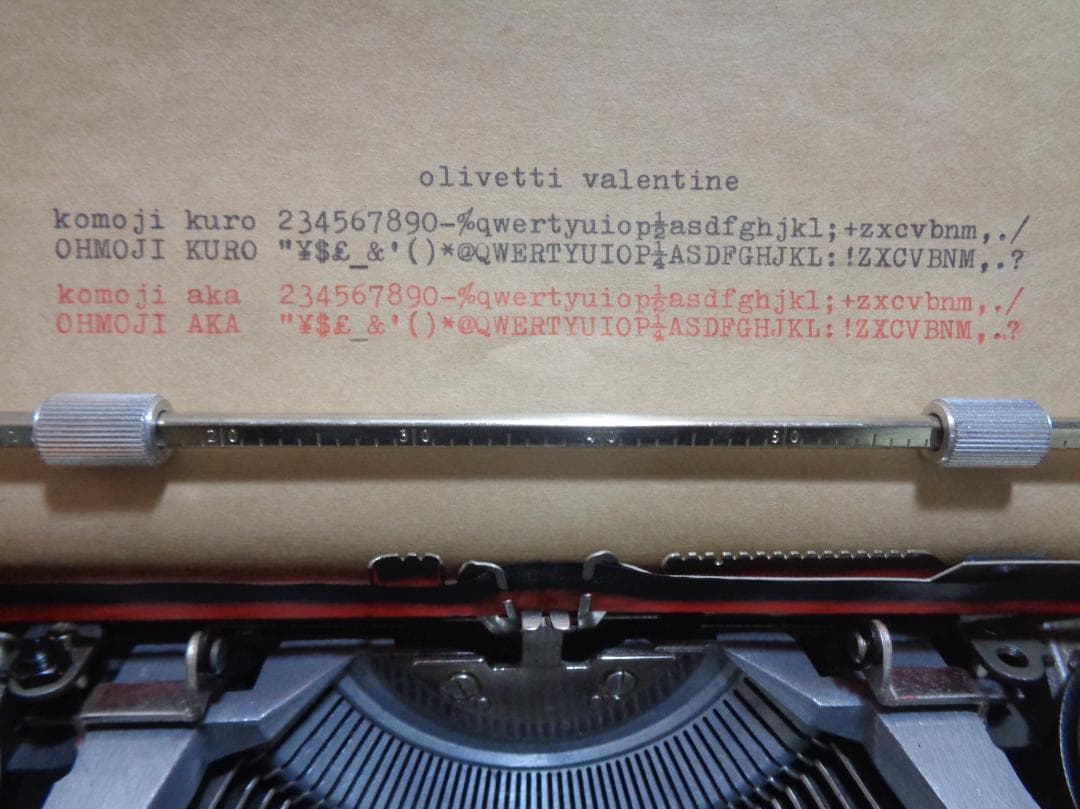 olivetti valentine
komoji kuro 234567890-%qwertyuiop½asdfghjkl;+zxcvbnm,./
OHMOJI KURO "¥$£_&'()*@QWERTYUIOP¼ASDFGHJKL:!ZXCVBNM,.?
komoji aka 234567890-%qwertyuiop½asdfghjkl;+zxcvbnm,./
OHMOJI AKA "¥$£_&'()*@QWERTYUIOP¼ASDFGHJKL:!ZXCVBNM,.?
20 30 40 50